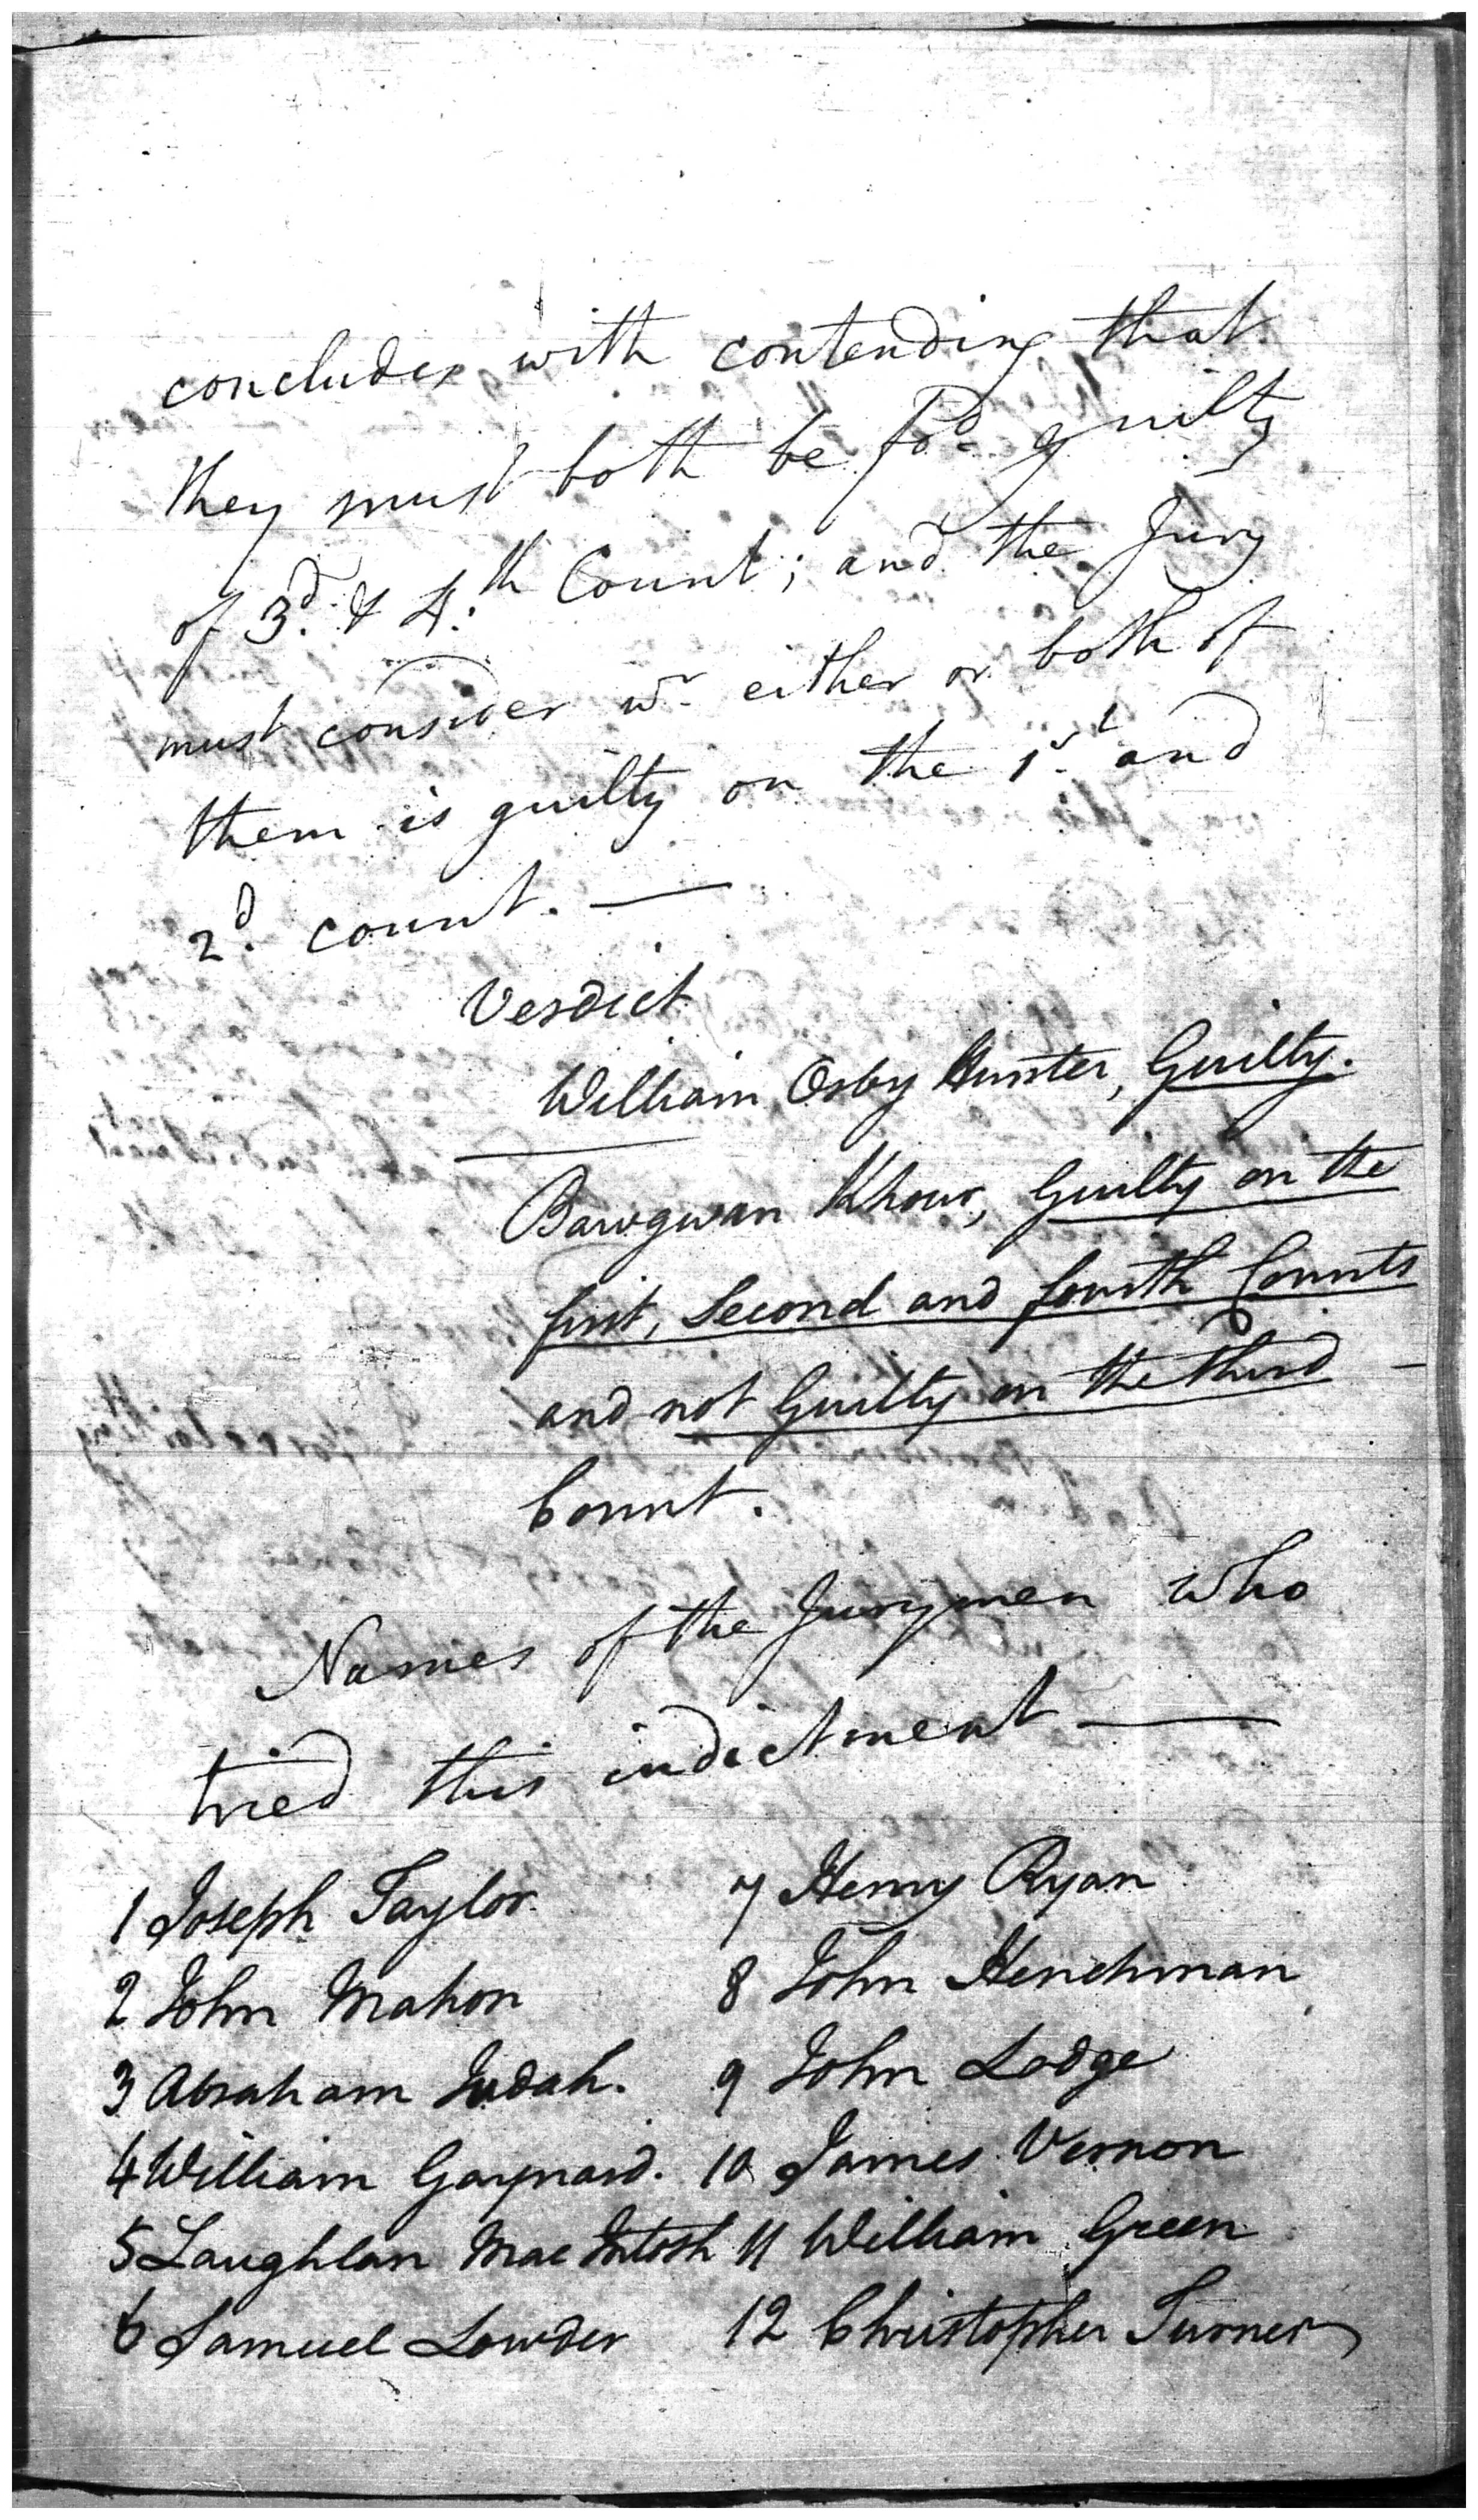 concludes with contending that
they must both be fo.d guilty
of 3.d & 4.th Count; and the Jury
must consider wr either or both of
them is guilty on the 1st and
2.d count. —
Verdict
William Osby Hunter, Guilty.
Bawgwan Khour, Guilty on the
first, Second and fourth Counts
and not Guilty on the third —
Count.
Names of the Jurymen who
tried this indictment —
1 Joseph Taylor
7 Henry Ryan
2 John Mahon
8 John Henchman
3 Abraham Judah.
9 John Lodge
4 William Gaynard.
10 James Vernon
5 Laughlan MacIntosh
11 William Green
6 Samuel Lowder
12 Christopher Turner